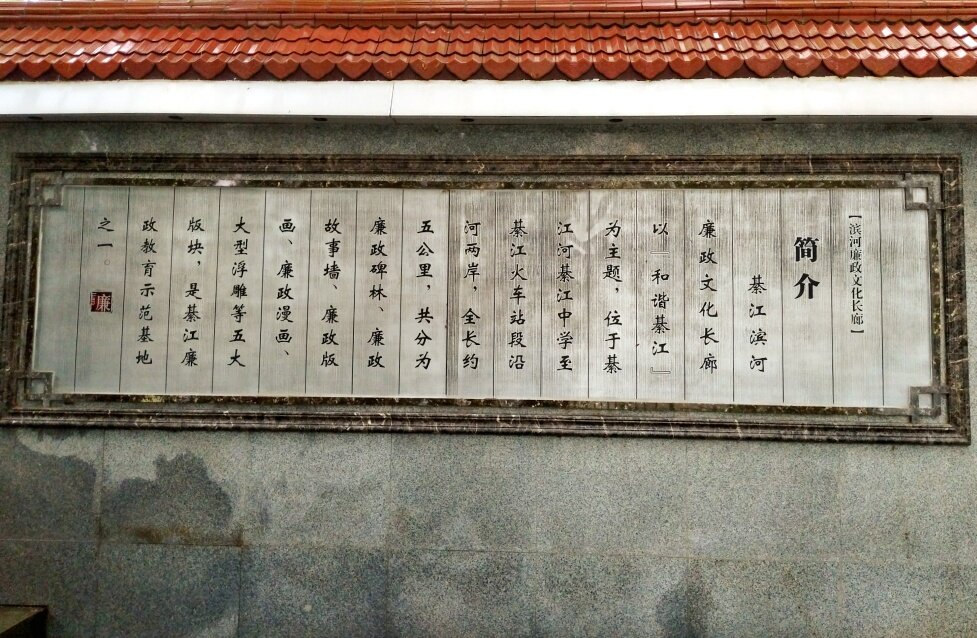 【滨河廉政文化长廊】
简介
綦江滨河
廉政文化长廊
以『和谐綦江』
为主题，位于綦
江河綦江中学至
綦江火车站段沿
河两岸，全长约
五公里，共分为
廉政碑林、廉政
故事墙、廉政版
画、廉政漫画、
大型浮雕等五大
版块，是綦江廉
政教育示范基地
之一。
廉